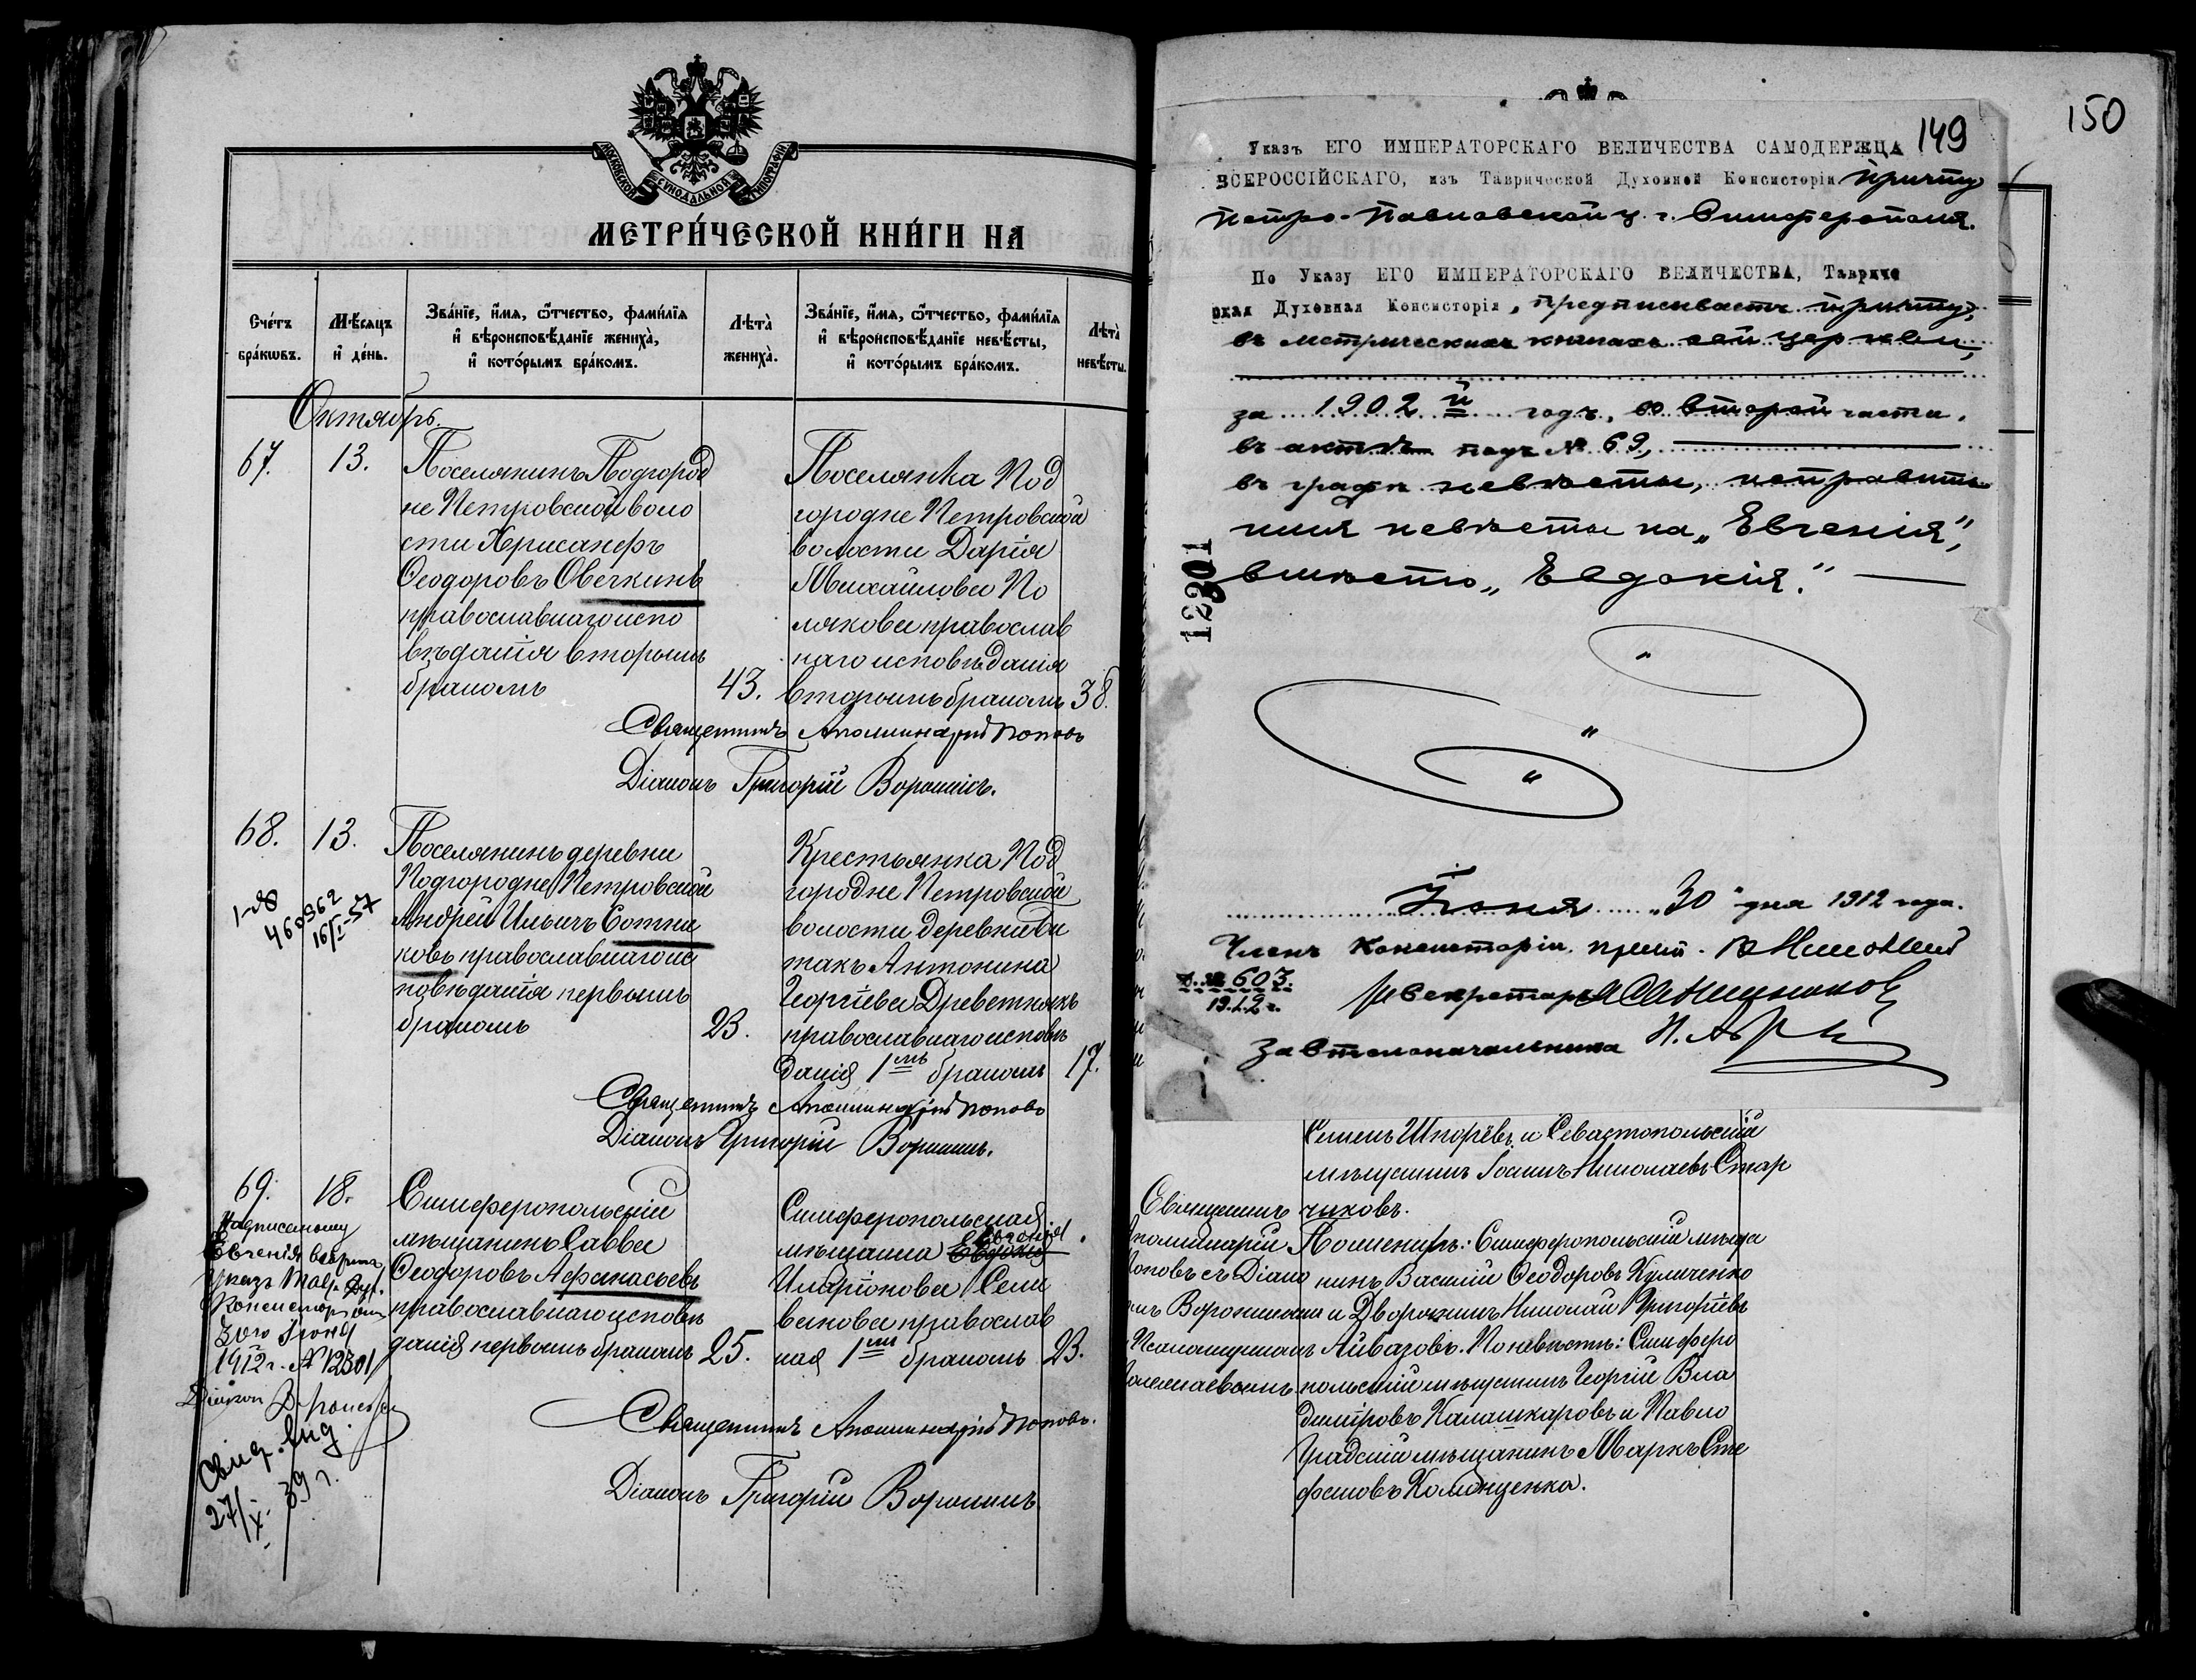 МОСКОВСКОЙ СУНОДАЛЬНОЙ ТИПОГРАФІИ
МЕТРИ́ЧЕСКОЙ КНИ́ГИ НА
Сче́тъ бра́кѡвъ.
Мѣсяцъ и҆ де́нь.
Зва́нїе, и҆́мя, ѻ҆́тчество, фами́лїя и҆ вѣроисповѣ́данїе жениха̀, и҆ кото́рымъ бра́комъ.
Лѣта̀ жениха̀.
Зва́нїе, и҆́мя, ѻ҆́тчество, фами́лїя и҆ вѣроисповѣ́данїе невѣ́сты, и҆ кото́рымъ бра́комъ.
Лѣта̀ невѣ́сты.
Октябрь.
67.
13.
Поселянинъ Подгород
не Петровской воло
сти Хрисанфъ
Ѳеодоровъ Овечкинъ
православнаго испо
вѣданія вторымъ
бракомъ
43.
Поселянка Под
городне Петровской
волости Дарія
Михайлова По
лякова православ
наго исповѣданія
вторымъ бракомъ
38.
Священникъ Аполлинарій Поповъ
Діаконъ Григорій Воронинъ.
68.
13.
460962
16/I-57
Поселянинъ деревни
Подгородне Петровской
Андрей Ильичъ Сотни
ковъ православнаго ис
повѣданія первымъ
бракомъ
23.
Крестьянка Под
городне Петровской
волости деревни Би
такъ Антонина
Георгіева Древетнякъ
православнаго исповѣ
данія 1мъ бракомъ
17.
Священникъ Аполлинарій Поповъ
Діаконъ Григорій Воронинъ.
69.
18.
Надписанному
Евгенія вѣрить
Указъ Тавр. Дух.
Консисторіи отъ
30го Іюня
1912 г. № 12301
Діакон
Свид. выд.
27/X. 39 г.
Симферопольскій
мѣщанинъ Савва
Ѳеодоровъ Афанасьевъ
православнаго исповѣ
данія первымъ бракомъ
25.
Симферопольская
Евгенія
мѣщанка Евдокія
Иларіонова Сели
ванова православ
ная 1мъ бракомъ
23.
Священникъ Аполлинарій Поповъ.
Діаконъ Григорій Воронинъ
150
149
Указъ ЕГО ИМПЕРАТОРСКАГО ВЕЛИЧЕСТВА САМОДЕРЖЦА
ВСЕРОССІЙСКАГО, изъ Таврической Духовной Консисторіи причту
Петро-Павловской ц. г. Симферополя.
По Указу ЕГО ИМПЕРАТОРСКАГО ВЕЛИЧЕСТВА, Тавриче
ская Духовная Консисторія, предписываетъ причту,
въ метрическихъ книгахъ сей церкви,
за 1902 й годъ, во второй части,
въ актѣ подъ № 69,
въ графѣ невѣсты, исправить
имя невѣсты на „Евгенія",
вмѣсто „Евдокія".
12301
Іюня „30" дня 1912 года.
Членъ Консисторіи, прот.
№ 603.
1912 г.
Секретарь
За Столоначальника
Семенъ Шпорёвъ и Севастопольскій
мѣщанинъ Іоаннъ Николаевъ Стар
чиковъ.
Священникъ
Аполлинарій
Поповъ съ Діако
номъ Воронинымъ и
Псаломщикомъ
По женихѣ: Симферопольскій мѣща
нинъ Василій Ѳеодоровъ Куличенко
и Дворянинъ Николай Григоріевъ
Айвазовъ. По невѣстѣ: Симферо
польскій мѣщанинъ Георгій Вла
диміровъ Калашкаровъ и Павло
градскій мѣщанинъ Маркъ Сте
фановъ Коломценко.